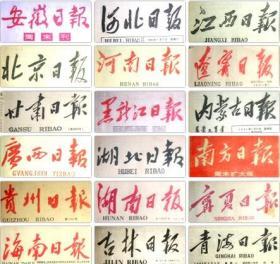 安徽日報
周末刊
河北日報
HEBEI RIBAO
江西日報
JIANGXI RIBAO
北京日報
河南日報
HENAN RIBAO
遼寧日報
LIAONING RIBAO
甘肃日報
GANSU RIBAO
黑龍江日報
内蒙古日報
廣西日報
GVANGJSIH YIZBAU
湖北日報
HUBEI RIBAO
南方日報
周末扩大版
貴州日報
GUIZHOU RIBAO
湖南日報
HUNAN RIBAO
寧夏日報
NINGXIA RIBAO
海南日報
吉林日報
JILIN RIBAO
青海日報
QINGHAI RIBAO